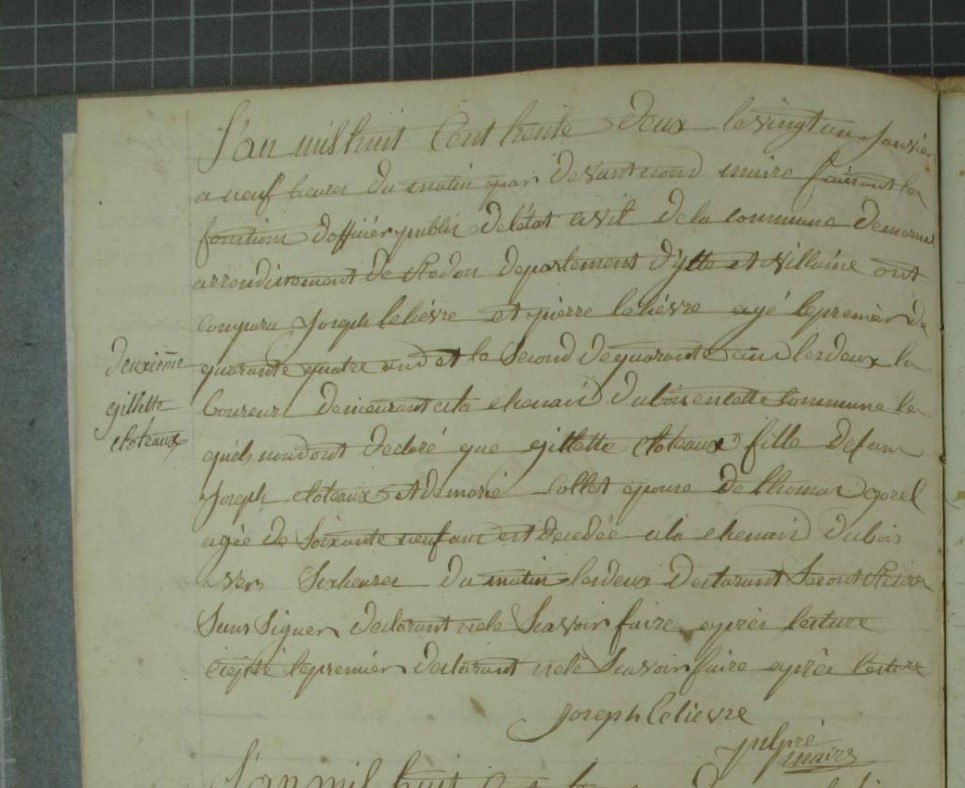 L'an mil huit Cent trente Deux le vingt un Janvier
a neuf heures du matin par Devant nous maire faisant les
fonctions D'officier public De l'état civil de la commune De
arrondissement De Redon Departement D'ylle et Villaine ont
Comparu Joseph lelièvre et pierre lelièvre agé le premier de
quarante quatre ans et le Second De quarante ans les deux la
boureurs demeurant a la chenais Dubois en cette Commune les
quels nous ont Declaré que gillette cloteaux fille De feu
Joseph cloteaux et De marie collet epouse De thomas gorel
agée De Soixante neuf ans est Decedée a la chenais Dubois
vers Six heures du matin les deux Declarant Se sont Retirer
Sans Signer Declarant ne le Scavoir faire après lecture
le premier Declarant ne le Scavoir faire après lecture
Joseph lelievre
maire
Deuxième
gillette
cloteaux
L'an mil huit